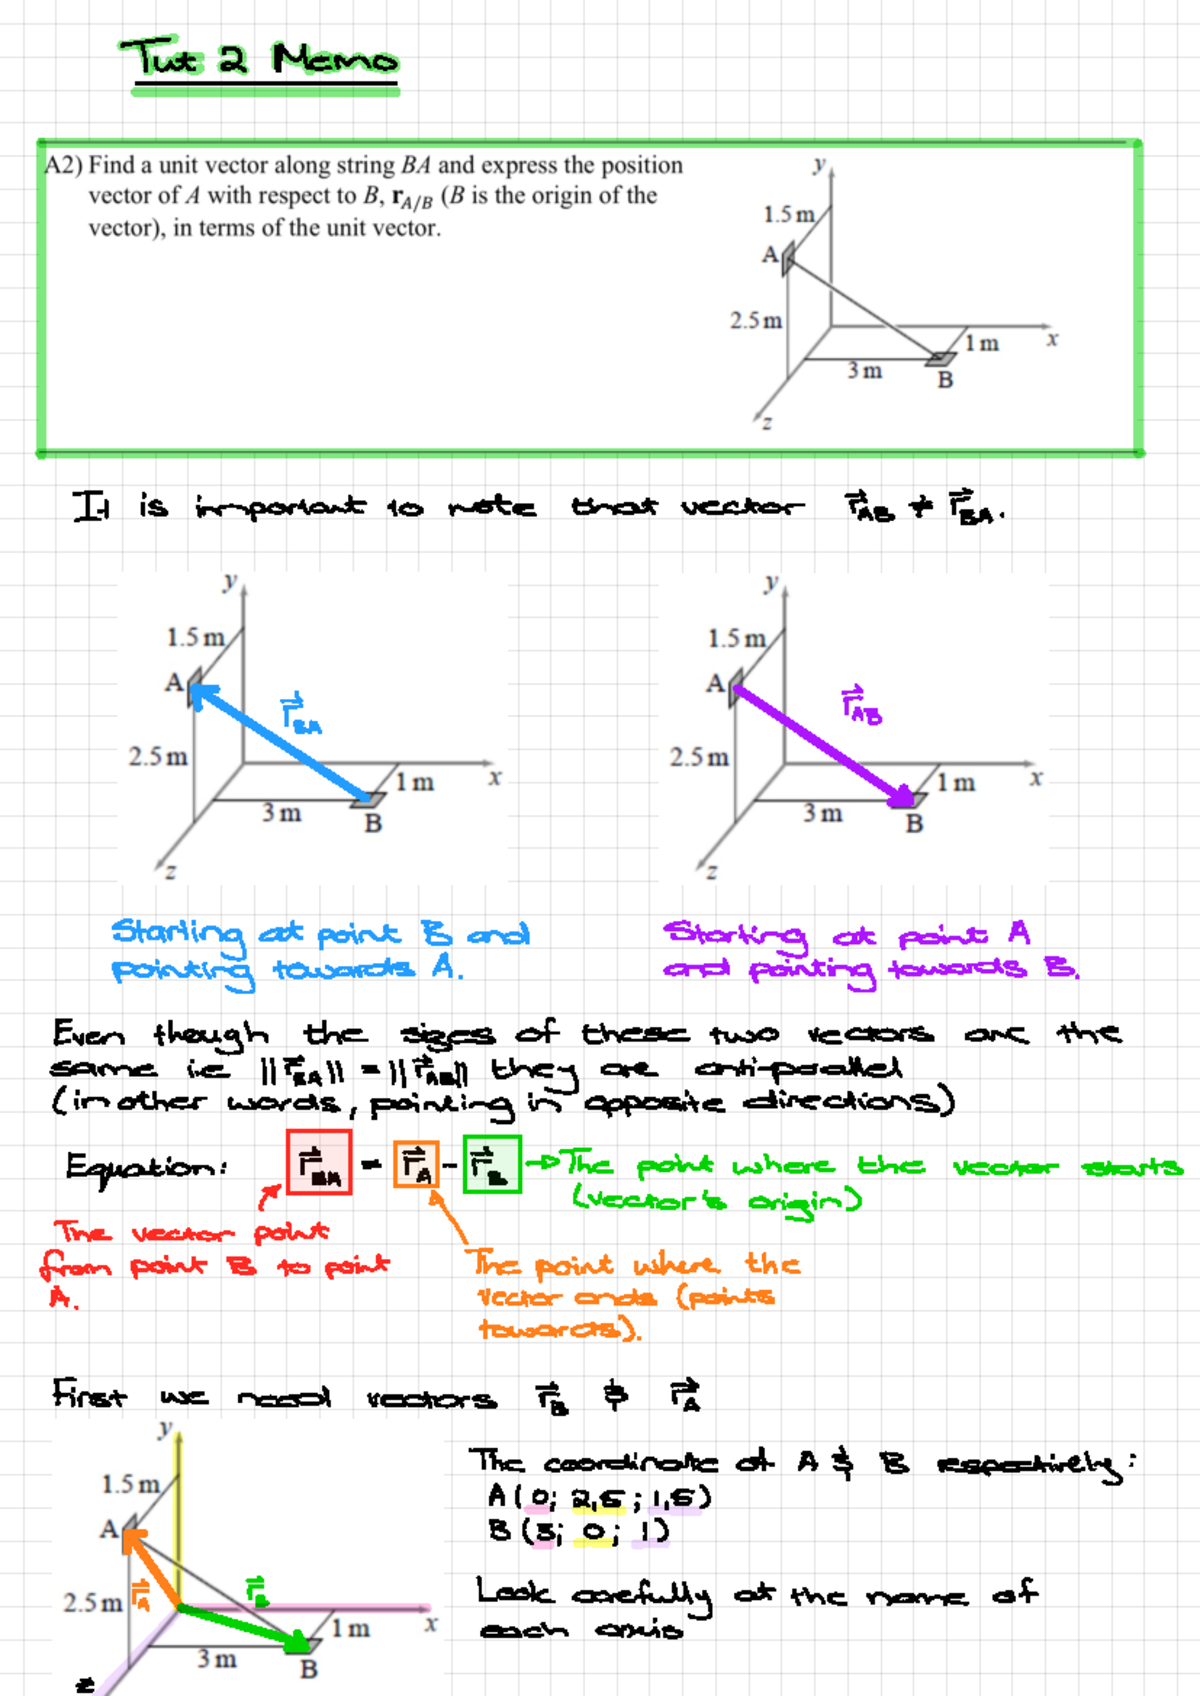 Tut 2 Memo
A2) Find a unit vector along string BA and express the position
vector of A with respect to B, r_A/B (B is the origin of the
vector), in terms of the unit vector.
y
1.5 m
A
2.5 m
1 m
x
3 m
B
z
It is important to note that vector r⃗_AB ≠ r⃗_BA.
y
1.5 m
A
r⃗_BA
2.5 m
1 m
x
3 m
B
z
y
1.5 m
A
r⃗_AB
2.5 m
1 m
x
3 m
B
z
Starting at point B and
pointing towards A.
Starting at point A
and pointing towards B.
Even though the sizes of these two vectors are the
same i.e ||r⃗_BA|| = ||r⃗_AB|| they are anti-parallel
(in other words, pointing in opposite directions)
Equation: r⃗_BA = r⃗_A - r⃗_B → The point where the vector starts
(vector's origin)
The vector point
from point B to point
A.
The point where the
vector ends (points
towards).
First we need vectors r⃗_B & r⃗_A
y
1.5 m
A
r⃗_A
r⃗_B
2.5 m
1 m
x
3 m
B
z
The coordinate of A & B respectively:
A (0; 2,5; 1,5)
B (3; 0; 1)
Look carefully at the name of
each axis